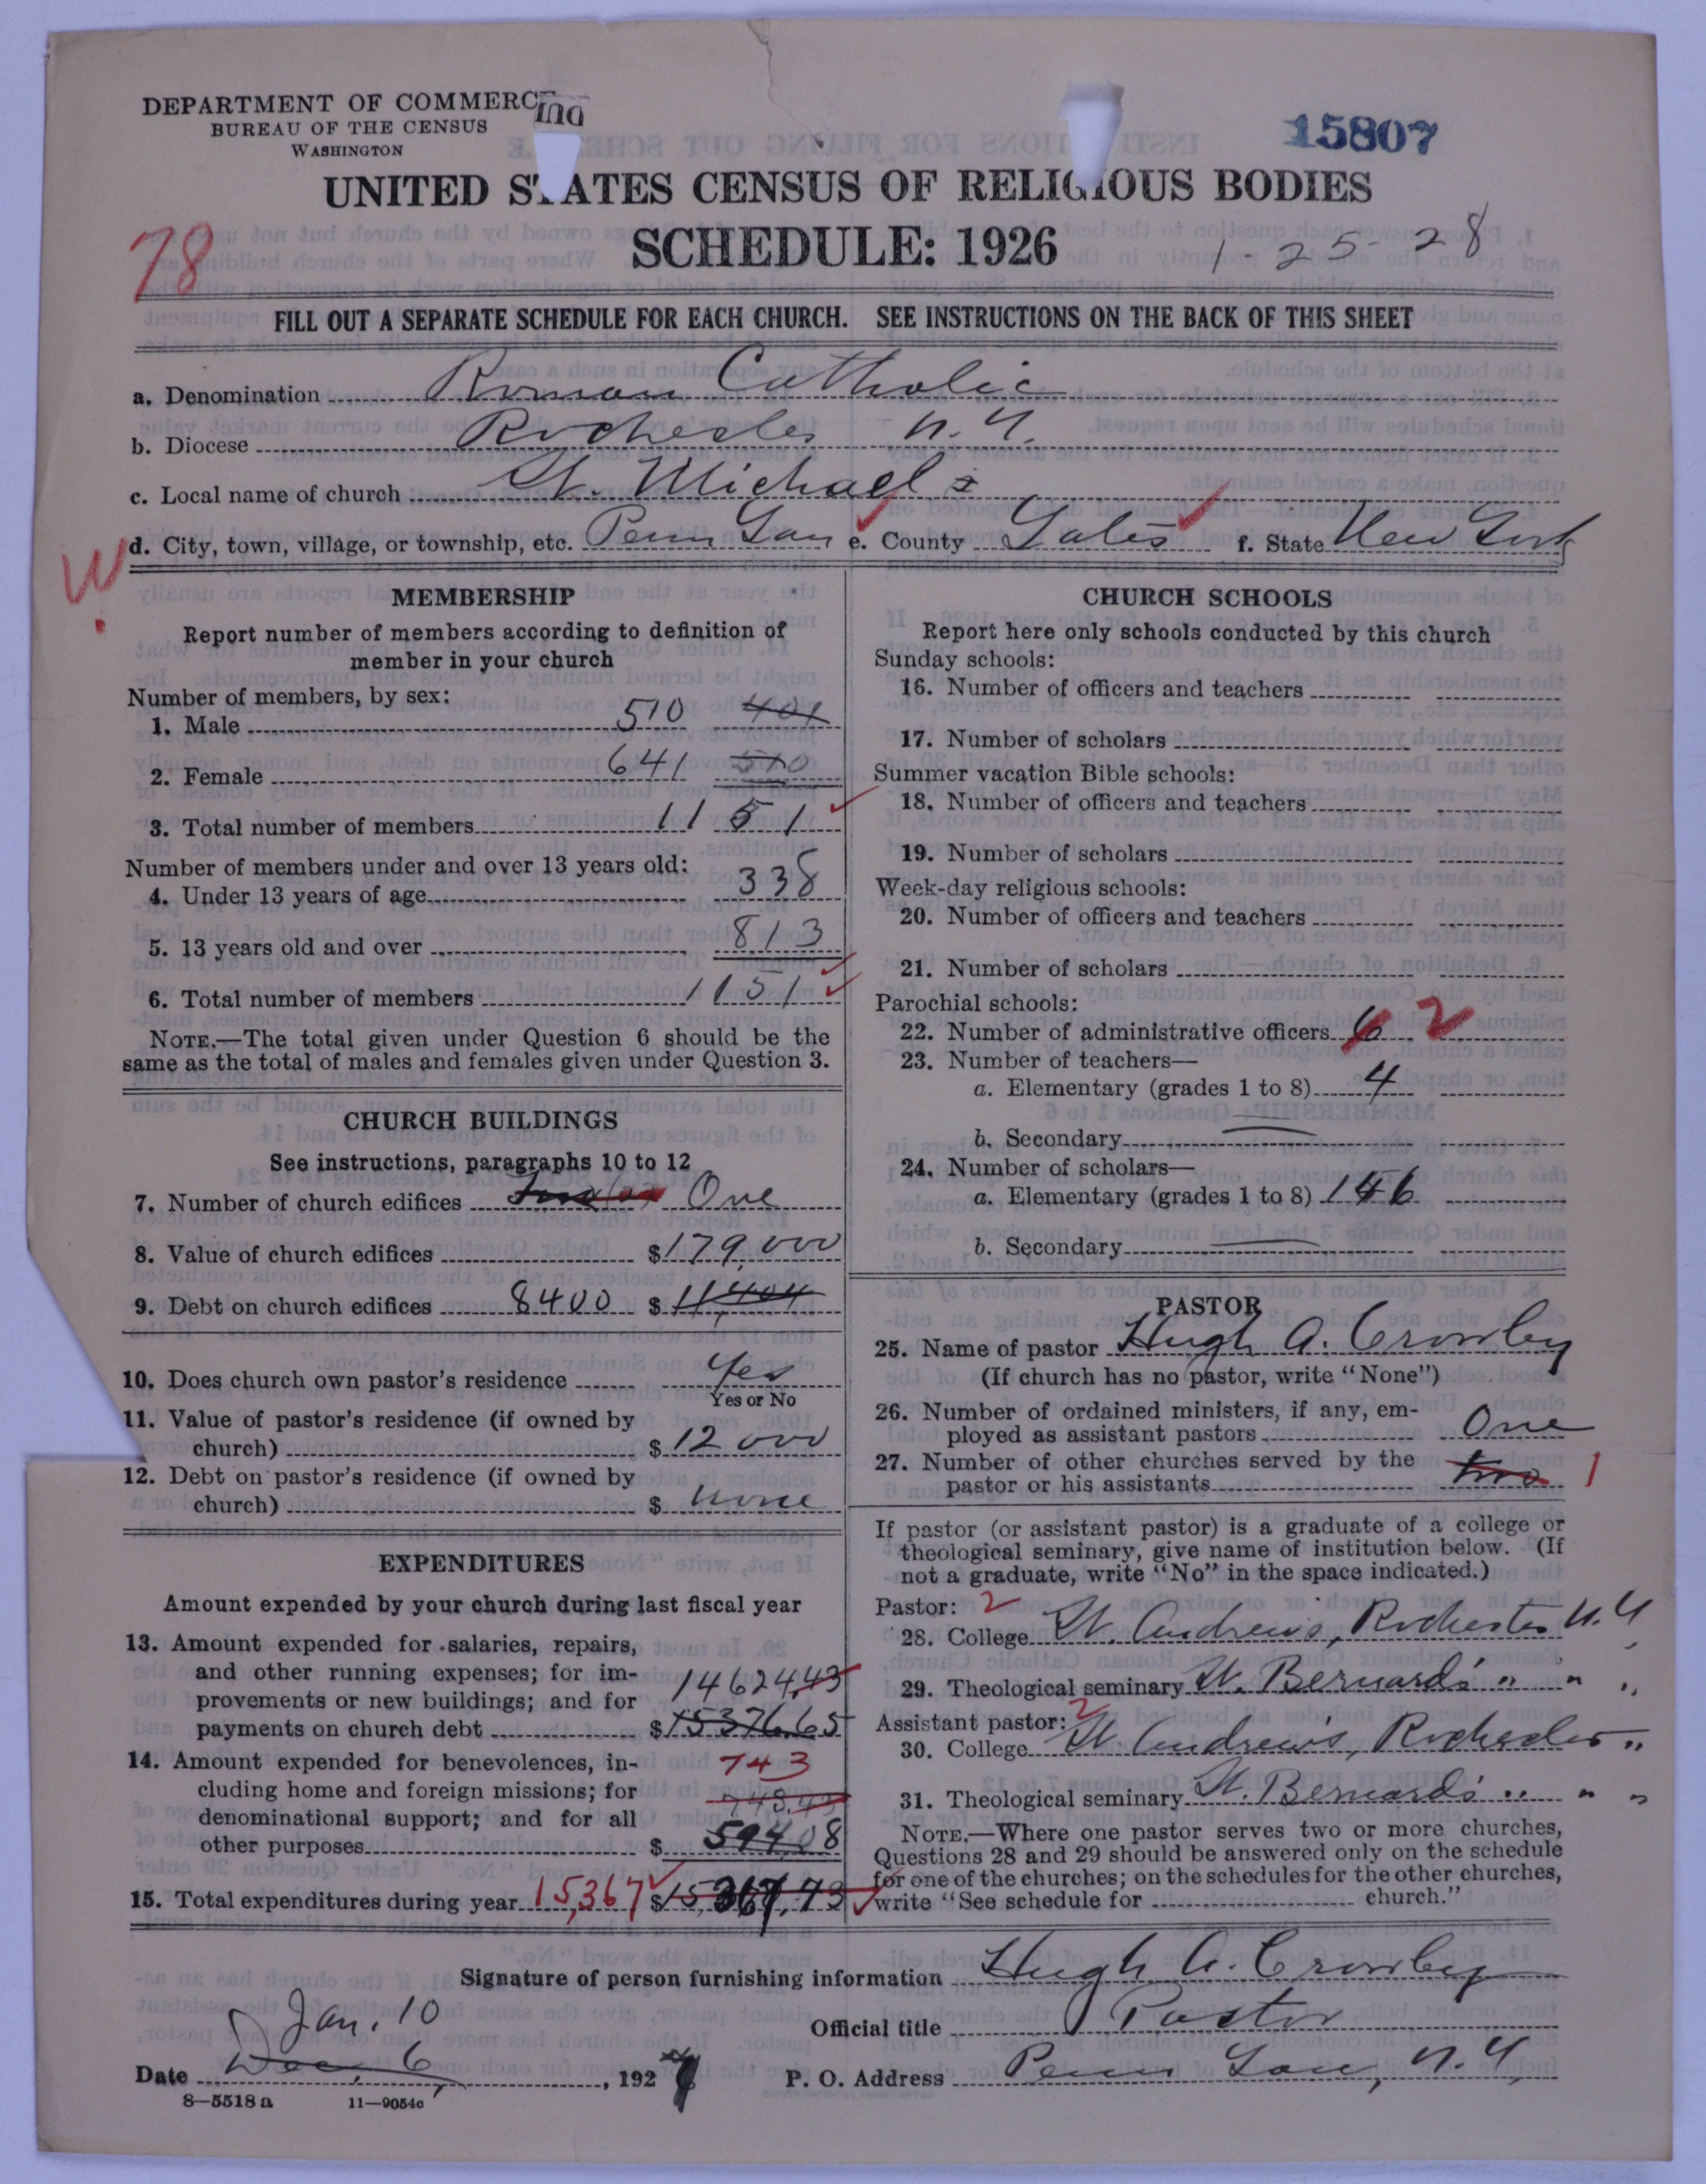 DEPARTMENT OF COMMERCE
BUREAU OF THE CENSUS
WASHINGTON
15807
UNITED STATES CENSUS OF RELIGIOUS BODIES
78
SCHEDULE: 1926
1-25-28
FILL OUT A SEPARATE SCHEDULE FOR EACH CHURCH. SEE INSTRUCTIONS ON THE BACK OF THIS SHEET
a. Denomination Roman Catholic
b. Diocese Rochester N.Y.
c. Local name of church St. Michael's
W. d. City, town, village, or township, etc. Penn Yan e. County Yates f. State New York
MEMBERSHIP
Report number of members according to definition of
member in your church
Number of members, by sex:
1. Male 510 401
2. Female 641 510
3. Total number of members 1151
Number of members under and over 13 years old:
4. Under 13 years of age 338
5. 13 years old and over 813
6. Total number of members 1151
NOTE.—The total given under Question 6 should be the
same as the total of males and females given under Question 3.
CHURCH BUILDINGS
See instructions, paragraphs 10 to 12
7. Number of church edifices One
8. Value of church edifices $179,000
9. Debt on church edifices 8400 $11,404
10. Does church own pastor's residence Yes
Yes or No
11. Value of pastor's residence (if owned by
church) $12000
12. Debt on pastor's residence (if owned by
church) $ none
EXPENDITURES
Amount expended by your church during last fiscal year
13. Amount expended for salaries, repairs,
and other running expenses; for im-
provements or new buildings; and for
payments on church debt
14624.43
$15376.65
14. Amount expended for benevolences, in-
cluding home and foreign missions; for
denominational support; and for all
other purposes
743
743.43
$ 594.08
15. Total expenditures during year 15,367 $15,367.73
CHURCH SCHOOLS
Report here only schools conducted by this church
Sunday schools:
16. Number of officers and teachers
17. Number of scholars
Summer vacation Bible schools:
18. Number of officers and teachers
19. Number of scholars
Week-day religious schools:
20. Number of officers and teachers
21. Number of scholars
Parochial schools:
22. Number of administrative officers 6 2
23. Number of teachers—
a. Elementary (grades 1 to 8) 4
b. Secondary —
24. Number of scholars—
a. Elementary (grades 1 to 8) 146
b. Secondary —
PASTOR
25. Name of pastor Hugh A. Crowley
(If church has no pastor, write "None")
26. Number of ordained ministers, if any, em-
ployed as assistant pastors One
27. Number of other churches served by the
pastor or his assistants two 1
If pastor (or assistant pastor) is a graduate of a college or
theological seminary, give name of institution below. (If
not a graduate, write "No" in the space indicated.)
Pastor: 2
28. College St. Andrew's, Rochester N.Y.
29. Theological seminary St. Bernard's " " "
Assistant pastor: 2
30. College St. Andrew's, Rochester "
31. Theological seminary St. Bernard's " " "
NOTE.—Where one pastor serves two or more churches,
Questions 28 and 29 should be answered only on the schedule
for one of the churches; on the schedules for the other churches,
write "See schedule for church."
Signature of person furnishing information Hugh A. Crowley
Official title Pastor
Jan. 10
Date Dec. 6, 1927
P. O. Address Penn Yan, N.Y.
8—5518a 11—9054c